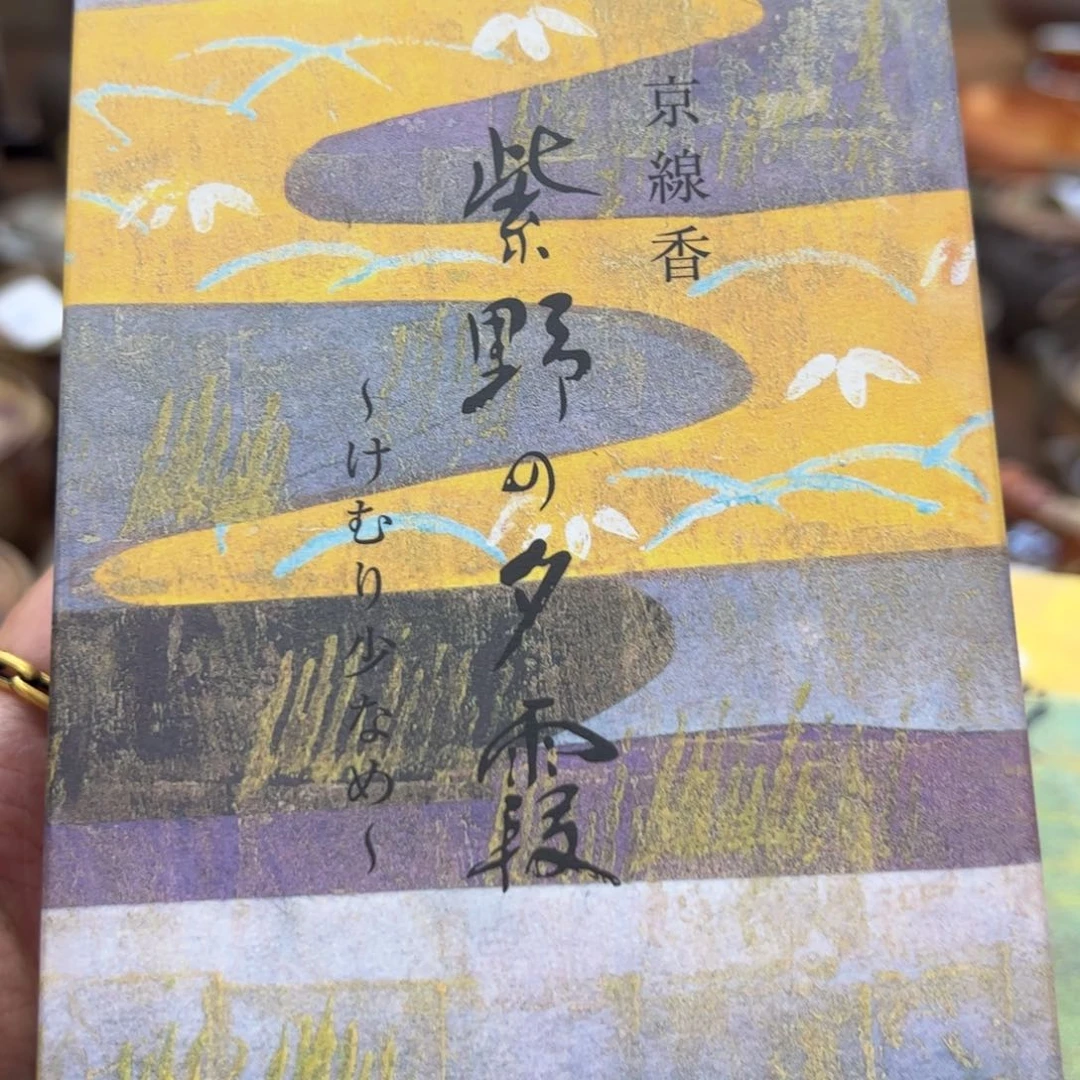 京線香
紫野の夕霞
~けむり少なめ~